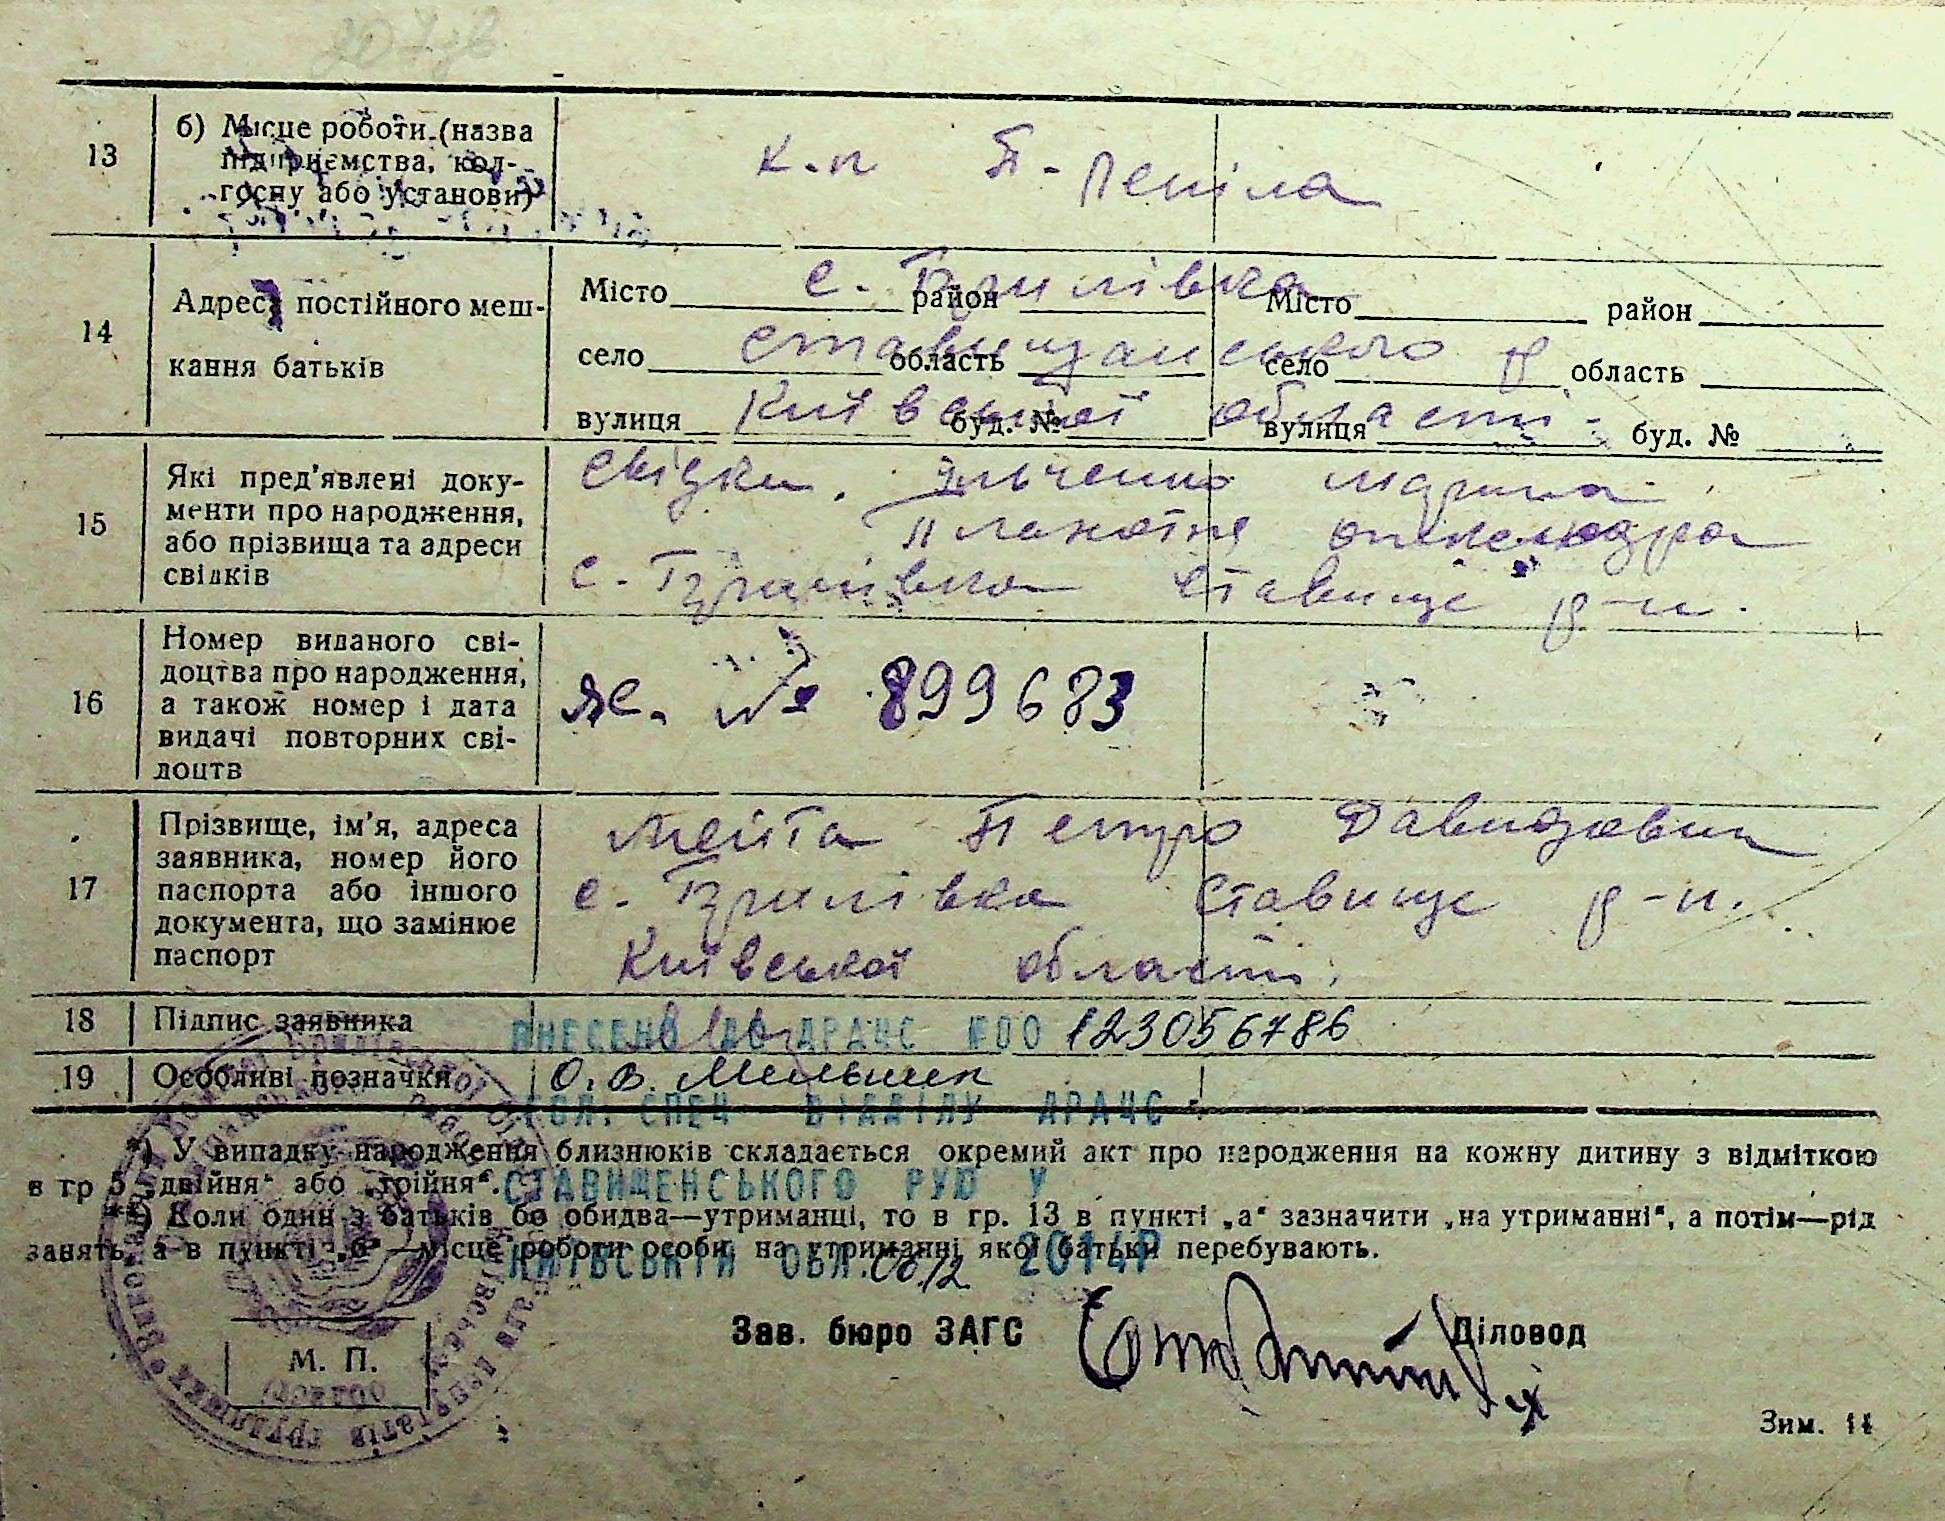 13
б) Місце роботи (назва
підприємства, кол-
госпу або установи)
к.п П-Пепіла
14
Адреса постійного меш-
кання батьків
Місто с. Брилівка район Місто район
село Ставищанського р область село область
вулиця Київської області буд. № вулиця буд. №
15
Які пред'явлені доку-
менти про народження,
або прізвища та адреси
свідків
Свідки. Ільченко Марина
Олександра
с. Брилівка Ставище р-н.
16
Номер виданого сві-
доцтва про народження,
а також номер і дата
видачі повторних сві-
доцтв
ЯС. № 899683
17
Прізвище, ім'я, адреса
заявника, номер його
паспорта або іншого
документа, що замінює
паспорт
Мейта Петро Давидович
с. Брилівка Ставище р-н.
Київської області.
18
Підпис заявника
ВНЕСЕНО ДО ДРАЦС №00 123056786
19
Особливі позначки
О. В. Мельник
ГОЛ. СПЕЦ ВІДДІЛУ ДРАЦС
*) У випадку народження близнюків складається окремий акт про народження на кожну дитину з відміткою
в гр 5 „двійня" або „трійня".
СТАВИЩЕНСЬКОГО РУЮ У
**) Коли один з батьків бо обидва—утриманці, то в гр. 13 в пункті „а" зазначити „на утриманні", а потім—рід
занять, а в пункті „б"—місце роботи особи, на утриманні якої батьки перебувають.
КИЇВСЬКІЙ ОБЛ. 08/12 2014Р
Зав. бюро ЗАГС Діловод
М. П.
Зим. 14